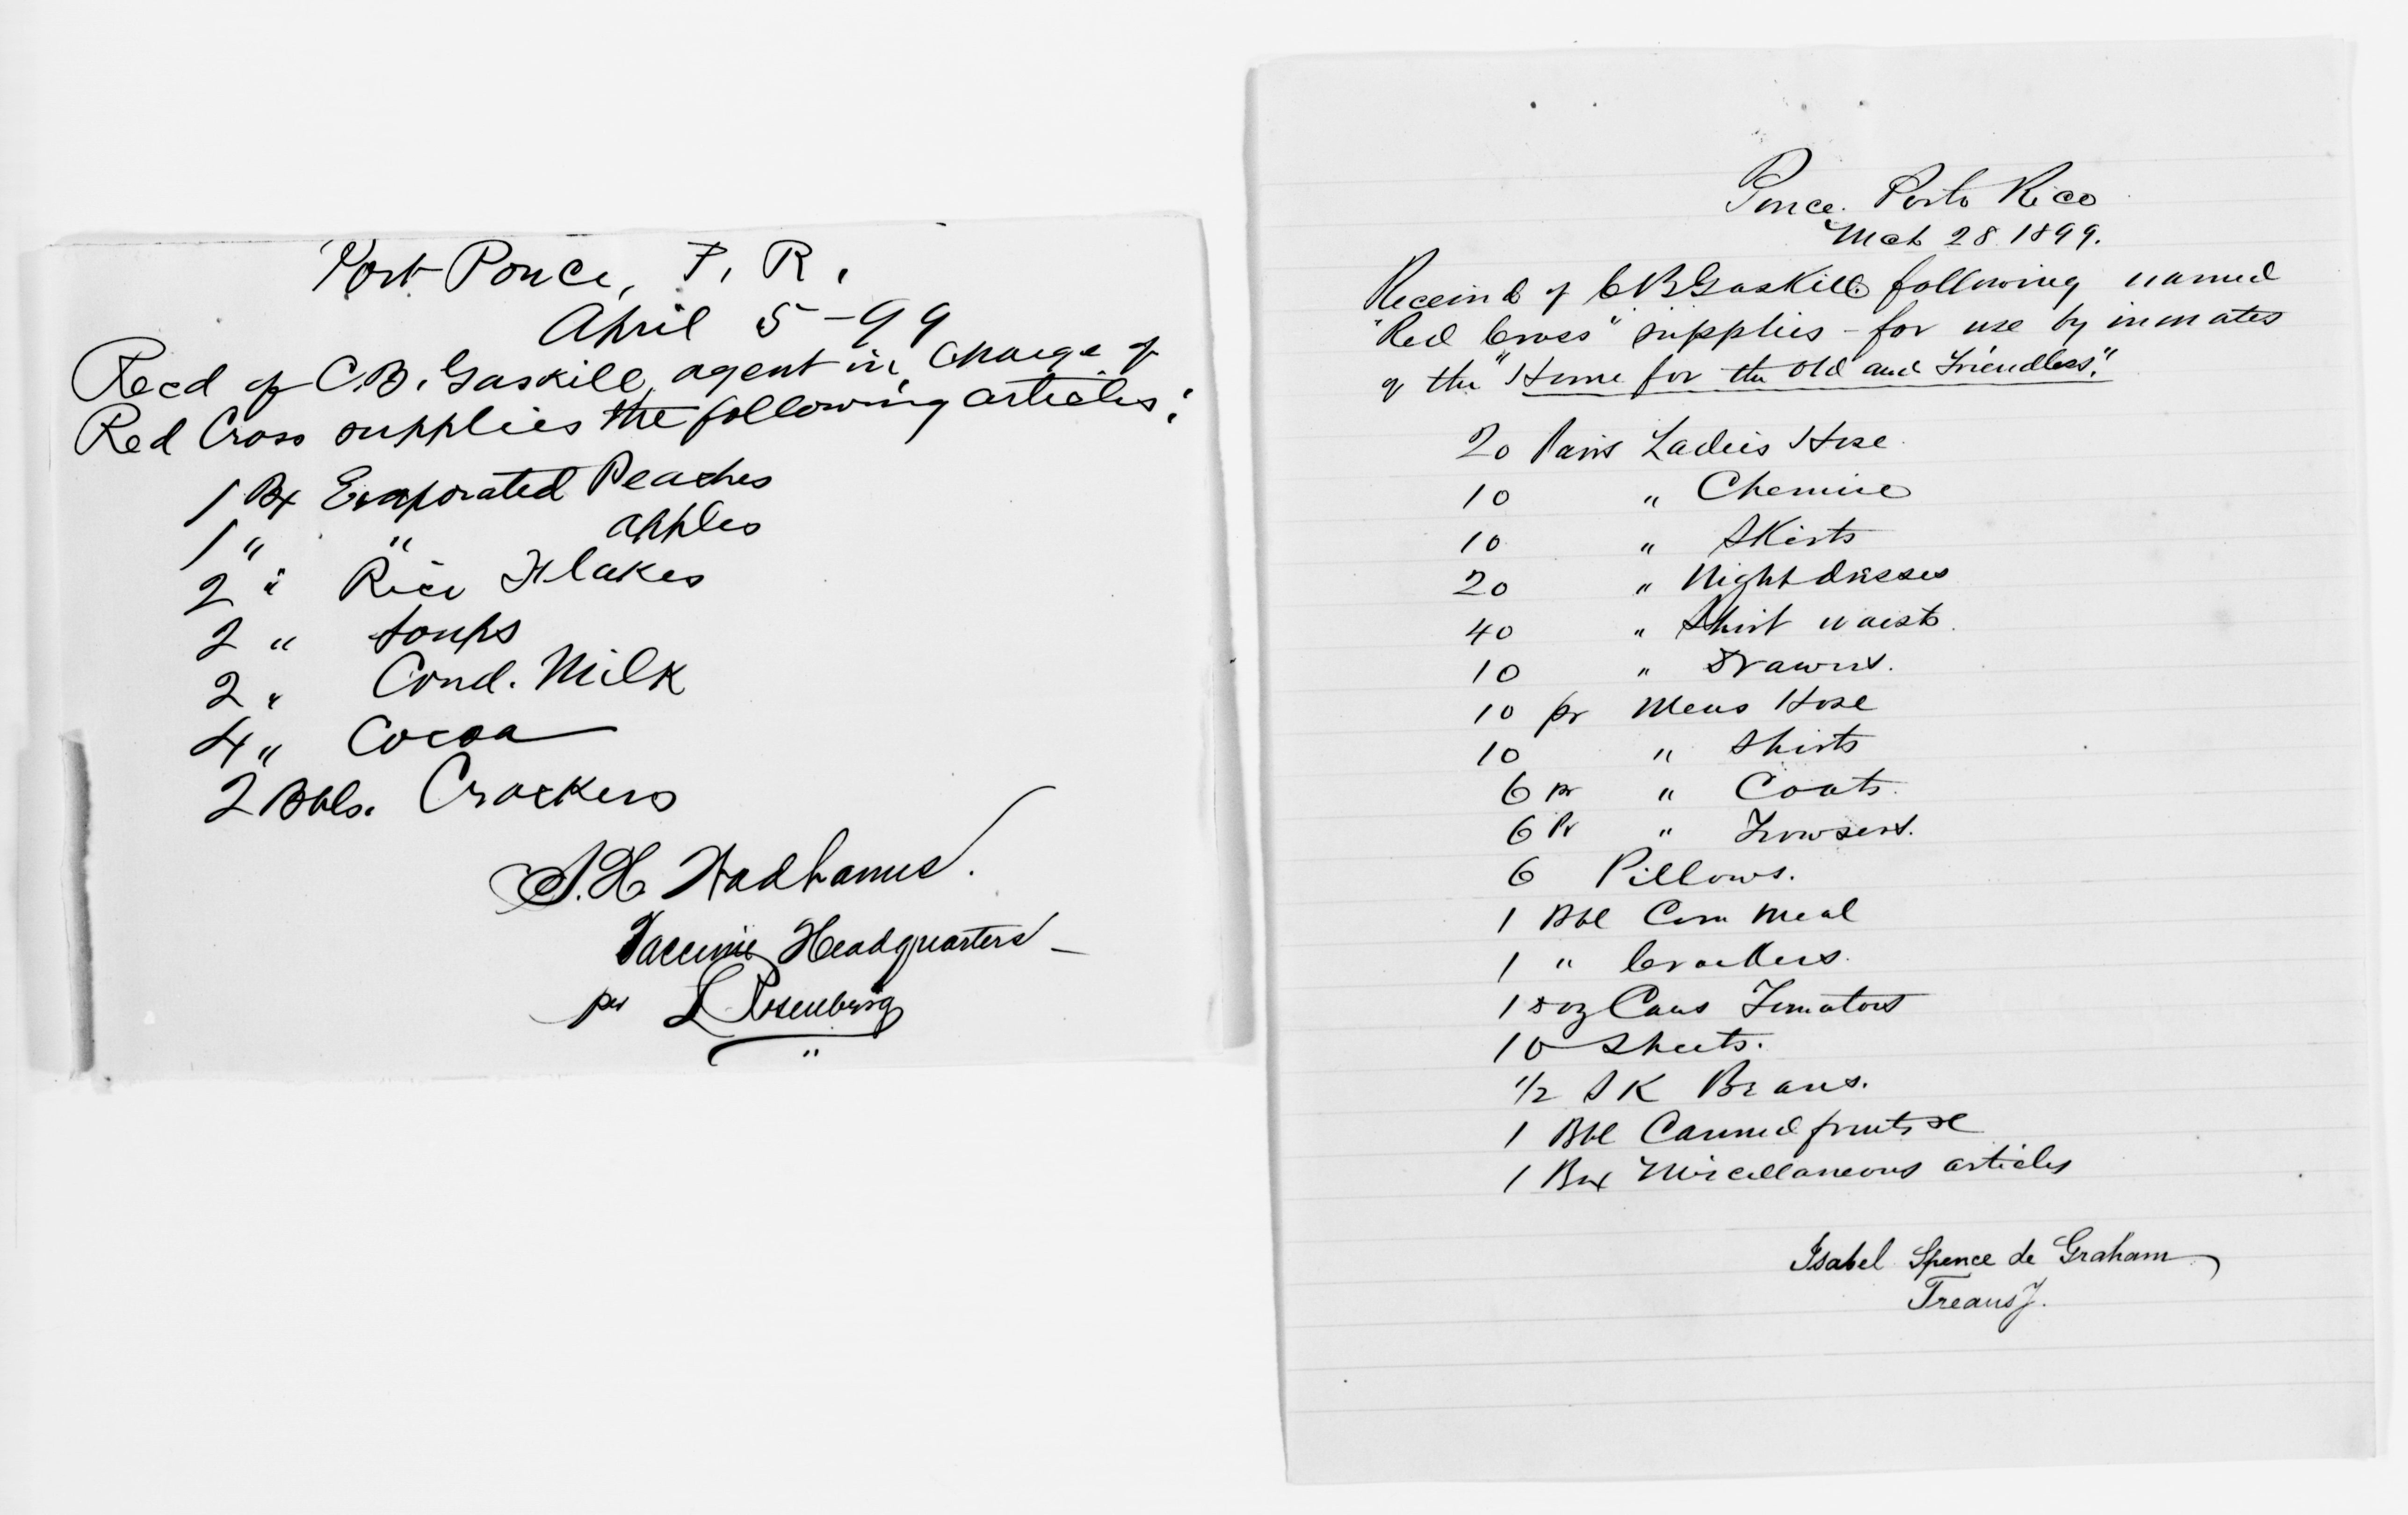 Port Ponce, P. R.
April 5 - 99
Recd of C.B. Gaskill, agent in charge of
Red Cross supplies the following articles:
1 Bx Evaporated Peaches
1 " " apples
2 " Rice Flakes
2 " soups
2 " Cond. Milk
4 " Cocoa
2 Bbls. Crackers
S.H. Wadhams.
Vaccine Headquarters -
per L Rosenberg
"
Ponce. Porto Rico
Mch 28 1899.
Receivd of C B Gaskill. following named
"Red Cross" supplies - for use by inmates
of the "Home for the Old and Friendless".
20 Pairs Ladies Hose.
10 " Chemise
10 " Skirts
20 " Nightdresses
40 " Shirt waists.
10 " Drawers.
10 pr Mens Hose
10 " Shirts
6 pr " Coats.
6 Pr " Trowsers.
6 Pillows.
1 Bbl Corn Meal
1 " Crackers.
1 doz Cans Tomatoes
10 Sheets.
1/2 SK Beans.
1 Bbl Canned fruits &c
1 Box Miscellaneous articles
Isabel Spence de Graham